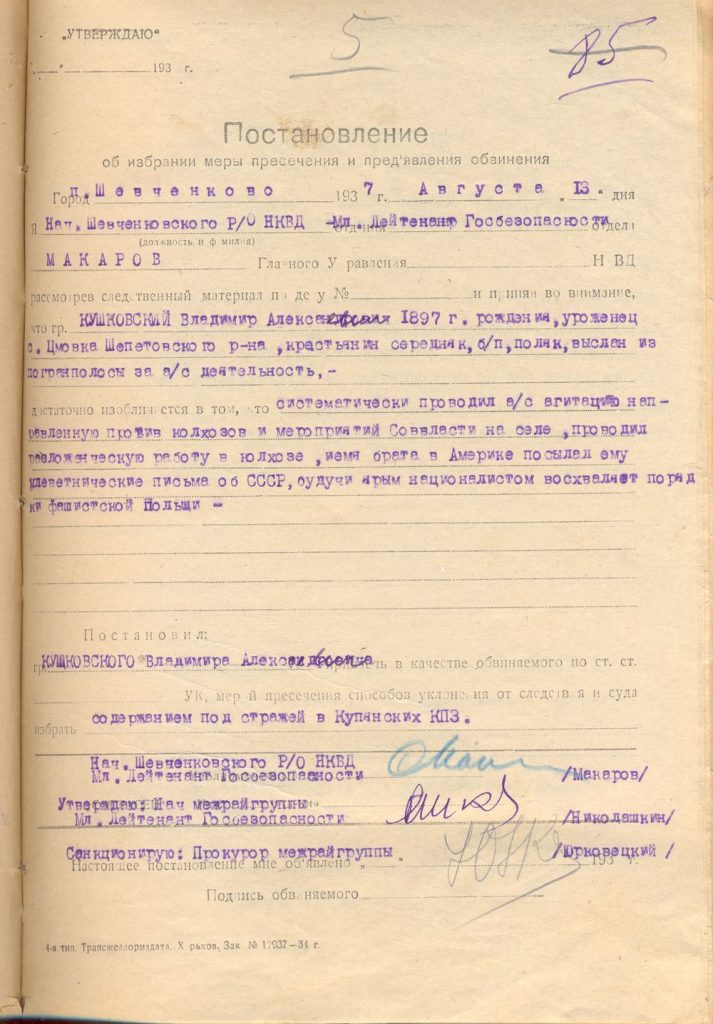 „УТВЕРЖДАЮ“
5
85
„ “ 193 г.
Постановление
об избрании меры пресечения и пред'явления обвинения
Город п. Шевченково 193 7 г. Августа „ 13 “ дня
Я Нач. Шевченковского Р/О НКВД -Мл. Лейтенант Госбезопасности отдел
(должность и ф милия)
МАКАРОВ Главного У равления Н ВД
рассмотрев следственный материал по де у № и приняв во внимание,
что гр. КУШКОВСКИЙ Владимир 1897 г. рождения, уроженец
с. Цмовка Шепетовского р-на ,крестьянин середняк, б/п, поляк, выслан из
погранполосы за а/с деятельность, -
достаточно изобличается в том, что систематически проводил а/с агитацию нап-
равленную против колхозов и мероприятий Соввласти на селе ,проводил
разложенческую работу в колхозе ,имея брата в Америке посылал ему
клеветнические письма об СССР, будучи ярым националистом восхваляет поряд
ки фашистской Польщи -
Постановил:
гр. КУШКОВСКОГО Владимира привлечь в качестве обвиняемого по ст. ст.
УК, мер й пресечения способов уклонения от следств я и суда
избрать содержанием под стражей в Купянских КПЗ.
Нач. Шевченковского Р/О НКВД
Мл. Лейтенант Госбезопасности /Макаров/
Утверждаю: Нач межрайгруппы
Мл. Лейтенант Госбезопасности /Николашкин/
Санкционирую: Прокурор межрайгруппы /Юрковецкий /
Настоящее постановление мне об'явлено „ “ 193 г.
Подпись обвиняемого
4-я тип. Трансжелдориздата. Х рьков. Зак № 12937—34 г.